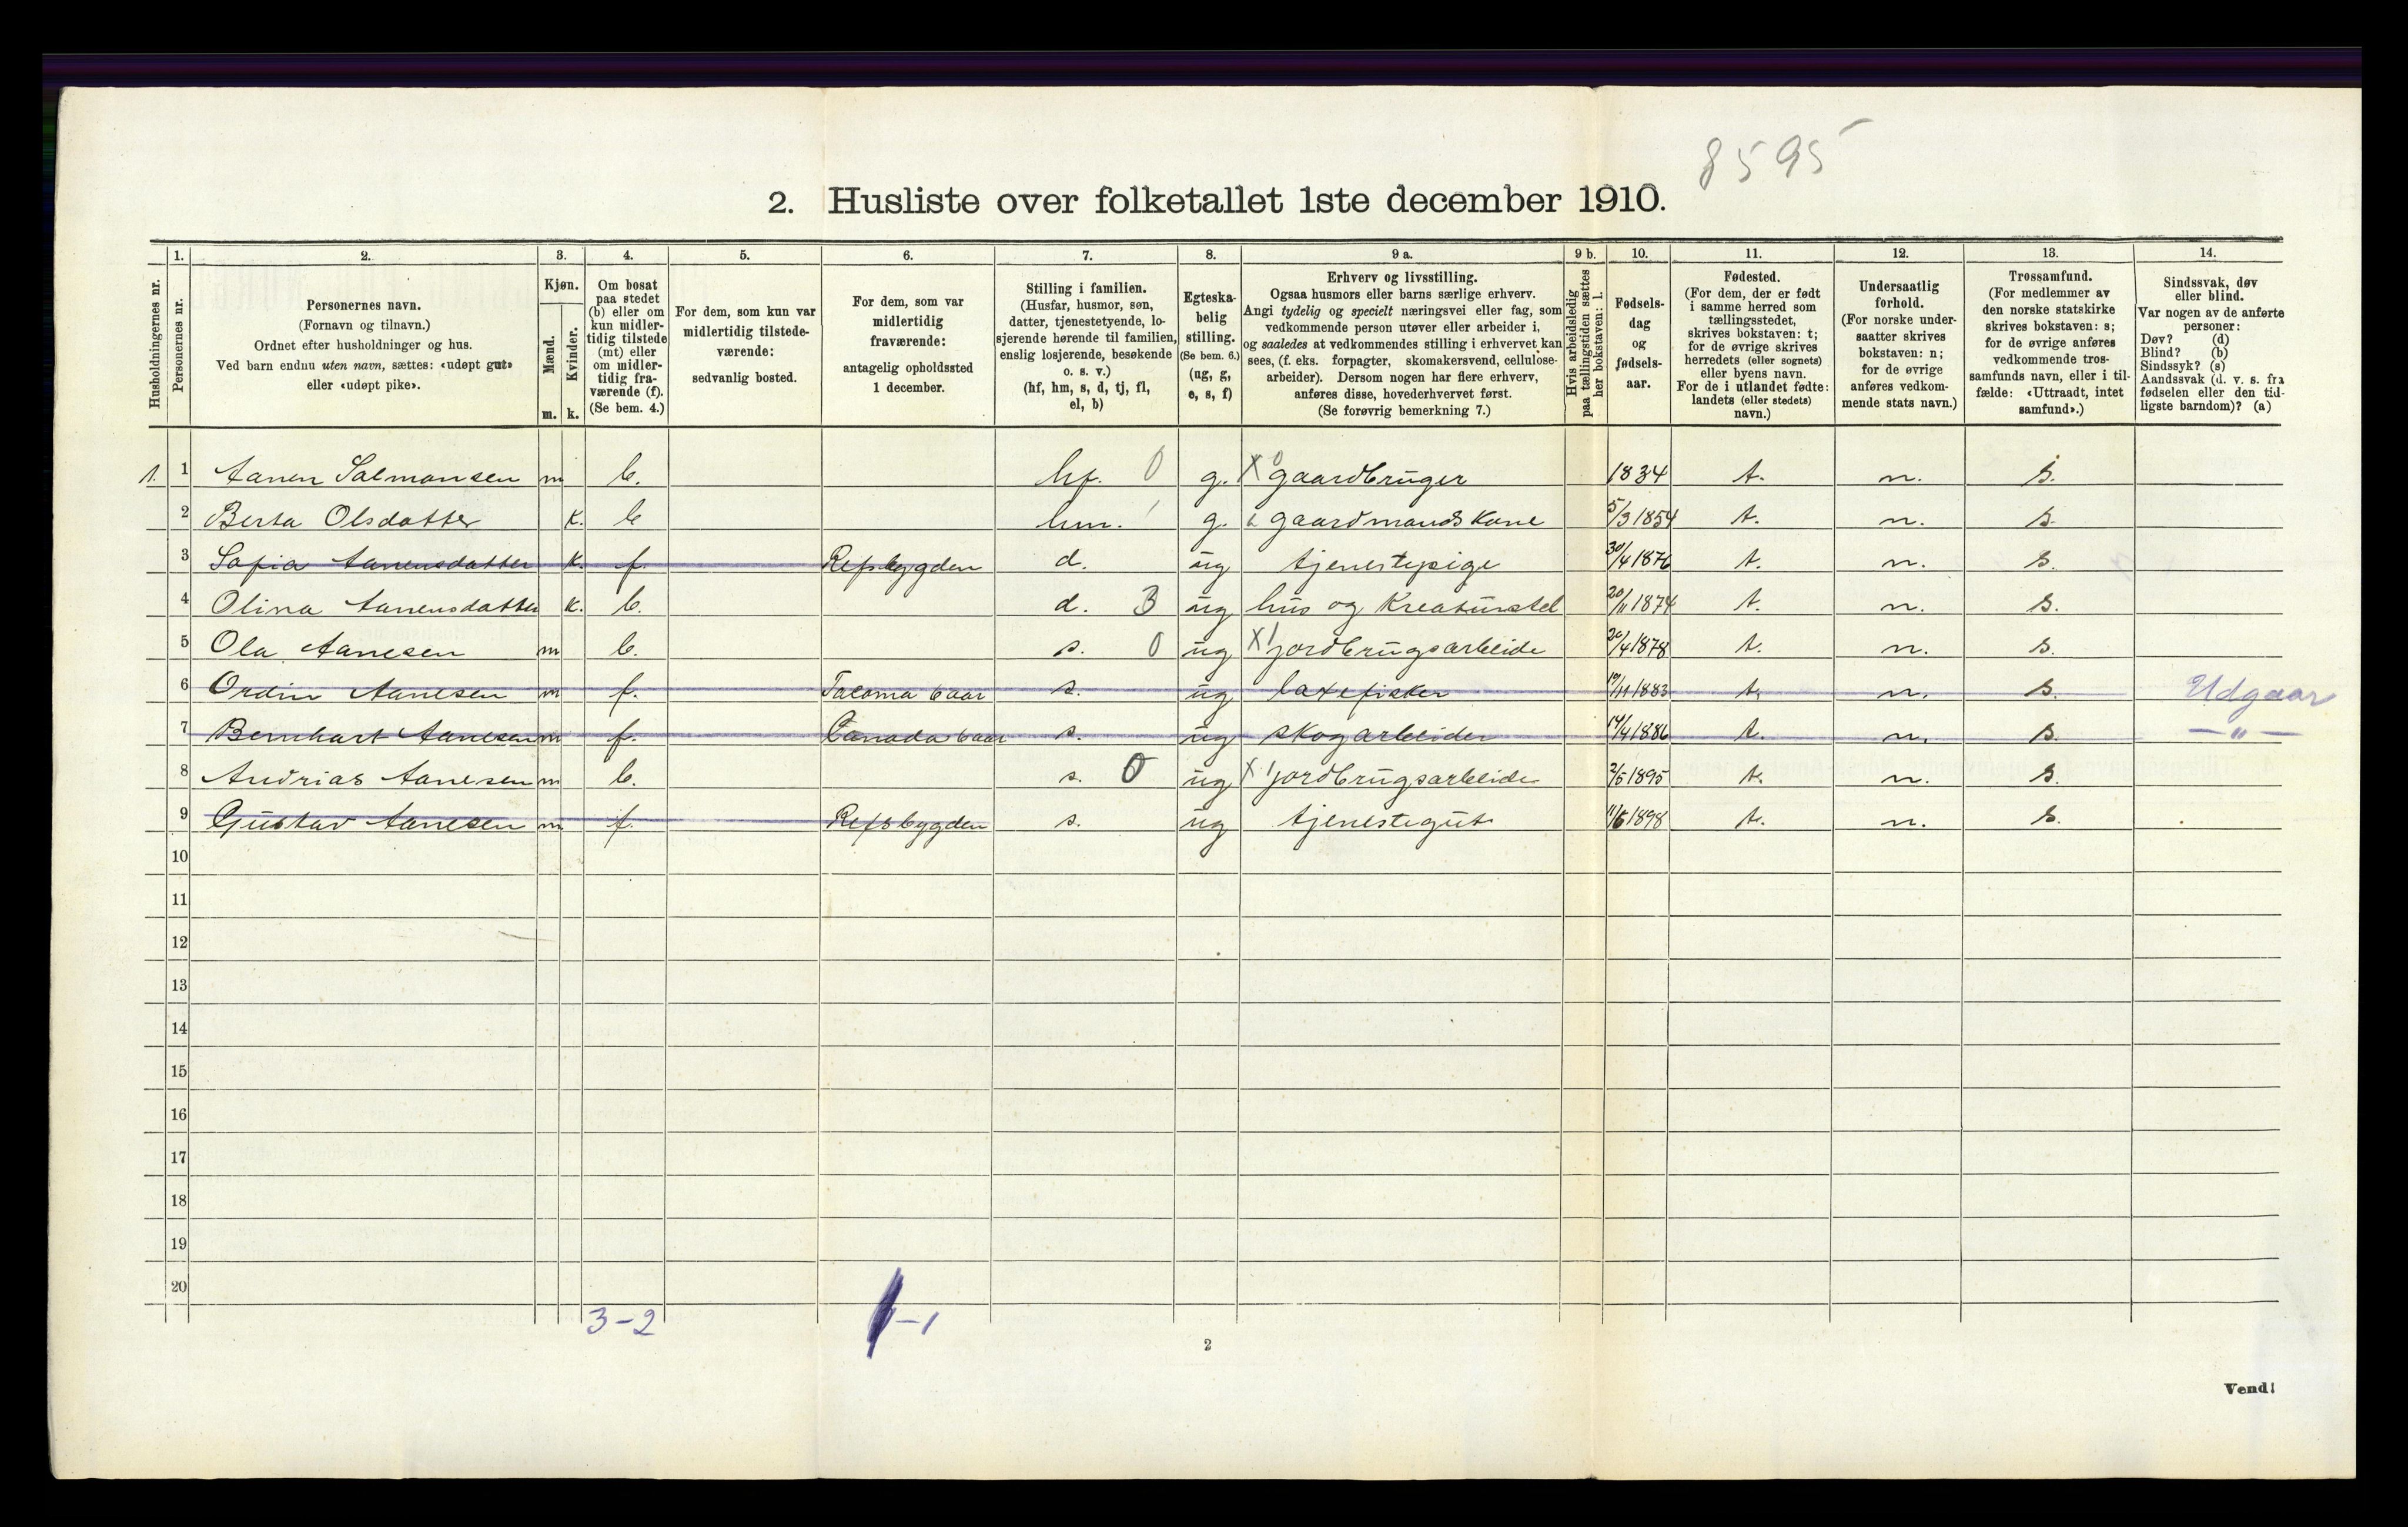 8595
2. Husliste over folketallet 1ste december 1910.
Husholdningernes nr.
1. Personernes nr.
2. Personernes navn.
(Fornavn og tilnavn.)
Ordnet efter husholdninger og hus.
Ved barn endnu uten navn, sættes: «udøpt gut»
eller «udøpt pike».
3. Kjøn.
Mænd. m.
Kvinder. k.
4. Om bosat
paa stedet
(b) eller om
kun midler-
tidig tilstede
(mt) eller
om midler-
tidig fra-
værende (f).
(Se bem. 4.)
5. For dem, som kun var
midlertidig tilstede-
værende:
sedvanlig bosted.
6. For dem, som var
midlertidig
fraværende:
antagelig opholdssted
1 december.
7. Stilling i familien.
(Husfar, husmor, søn,
datter, tjenestetyende, lo-
sjerende hørende til familien,
enslig losjerende, besøkende
o. s. v.)
(hf, hm, s, d, tj, fl,
el, b)
8. Egteska-
belig
stilling.
(Se bem. 6.)
(ug, g,
e, s, f)
9 a. Erhverv og livsstilling.
Ogsaa husmors eller barns særlige erhverv.
Angi tydelig og specielt næringsvei eller fag, som
vedkommende person utøver eller arbeider i,
og saaledes at vedkommendes stilling i erhvervet kan
sees, (f. eks. forpagter, skomakersvend, cellulose-
arbeider). Dersom nogen har flere erhverv,
anføres disse, hovederhvervet først.
(Se forøvrig bemerkning 7.)
9 b. Hvis arbeidsledig
paa tællingstiden sættes
her bokstaven: l.
10. Fødsels-
dag
og
fødsels-
aar.
11. Fødested.
(For dem, der er født
i samme herred som
tællingsstedet,
skrives bokstaven: t;
for de øvrige skrives
herredets (eller sognets)
eller byens navn.
For de i utlandet fødte:
landets (eller stedets)
navn.)
12. Undersaatlig
forhold.
(For norske under-
saatter skrives
bokstaven: n;
for de øvrige
anføres vedkom-
mende stats navn.)
13. Trossamfund.
(For medlemmer av
den norske statskirke
skrives bokstaven: s;
for de øvrige anføres
vedkommende tros-
samfunds navn, eller i til-
fælde: «Uttraadt, intet
samfund».)
14. Sindssvak, døv
eller blind.
Var nogen av de anførte
personer:
Døv? (d)
Blind? (b)
Sindssyk? (s)
Aandssvak (d. v. s. fra
fødselen eller den tid-
ligste barndom)? (a)
1. 1 Aanen Salmonsen m b. hf. 0 g. X 0 gaardbruger 1834 t. n. s.
2 Berta Olsdatter k. b hm. g. gaardmandskone 5/3 1854 t. n. s.
3 Sofia Aanensdatter k. f. Refsbygden d. ug tjenestepige 30/4 1876 t. n. s.
4 Olina Aanensdatter k. b. d. 3 ug hus og kreaturstel 20/11 1874 t. n. s.
5 Ola Aanesen m b. s. 0 ug X 1 jordbrugsarbeide 20/4 1878 t. n. s.
6 Ordin Aanesen m f. Tacoma 6 aar s. ug laxefisker 19/11 1883 t. n. s. Udgaar
7 Bernhart Aanesen m f. Canada 6 aar s. ug skogarbeider 14/4 1886 t. n. s. — " —
8 Andrias Aanesen m b. s. 0 ug X 1 jordbrugsarbeide 2/5 1895 t. n. s.
9 Gustav Aanesen m. f. Refsbygden s. ug tjenestegut 1898 t. n. s.
10
11
12
13
14
15
16
17
18
19
20
3-2 -1
2
Vend!